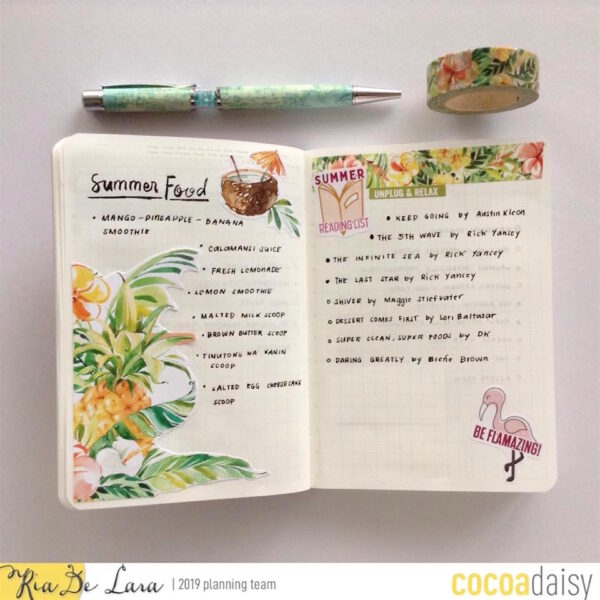 Summer Food
• MANGO - PINEAPPLE - BANANA
SMOOTHIE
• CALAMANSI JUICE
• FRESH LEMONADE
• LEMON SMOOTHIE
• MALTED MILK SCOOP
• BROWN BUTTER SCOOP
• TINUTONG NA KANIN
SCOOP
• SALTED EGG CHEESECAKE
SCOOP
SUMMER
READING LIST
UNPLUG & RELAX
• KEEP GOING by Austin Kleon
• THE 5TH WAVE by Rick Yancey
• THE INFINITE SEA by Rick Yancey
• THE LAST STAR by Rick Yancey
o SHIVER by Maggie Stiefvater
o DESSERT COMES FIRST by Lori Baltazar
o SUPER CLEAN, SUPER FOODS by DK
o DARING GREATLY by Brené Brown
BE FLAMAZING!
Ria De Lara | 2019 planning team
cocoadaisy